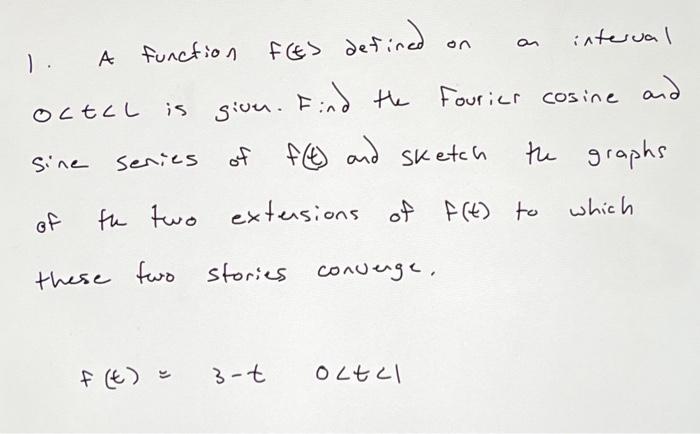 1. A function f(t) defined on an interval
0<t<L is given. Find the Fourier cosine and
sine series of f(t) and sketch the graphs
of the two extensions of f(t) to which
these two stories converge.
f(t) = 3-t 0<t<1